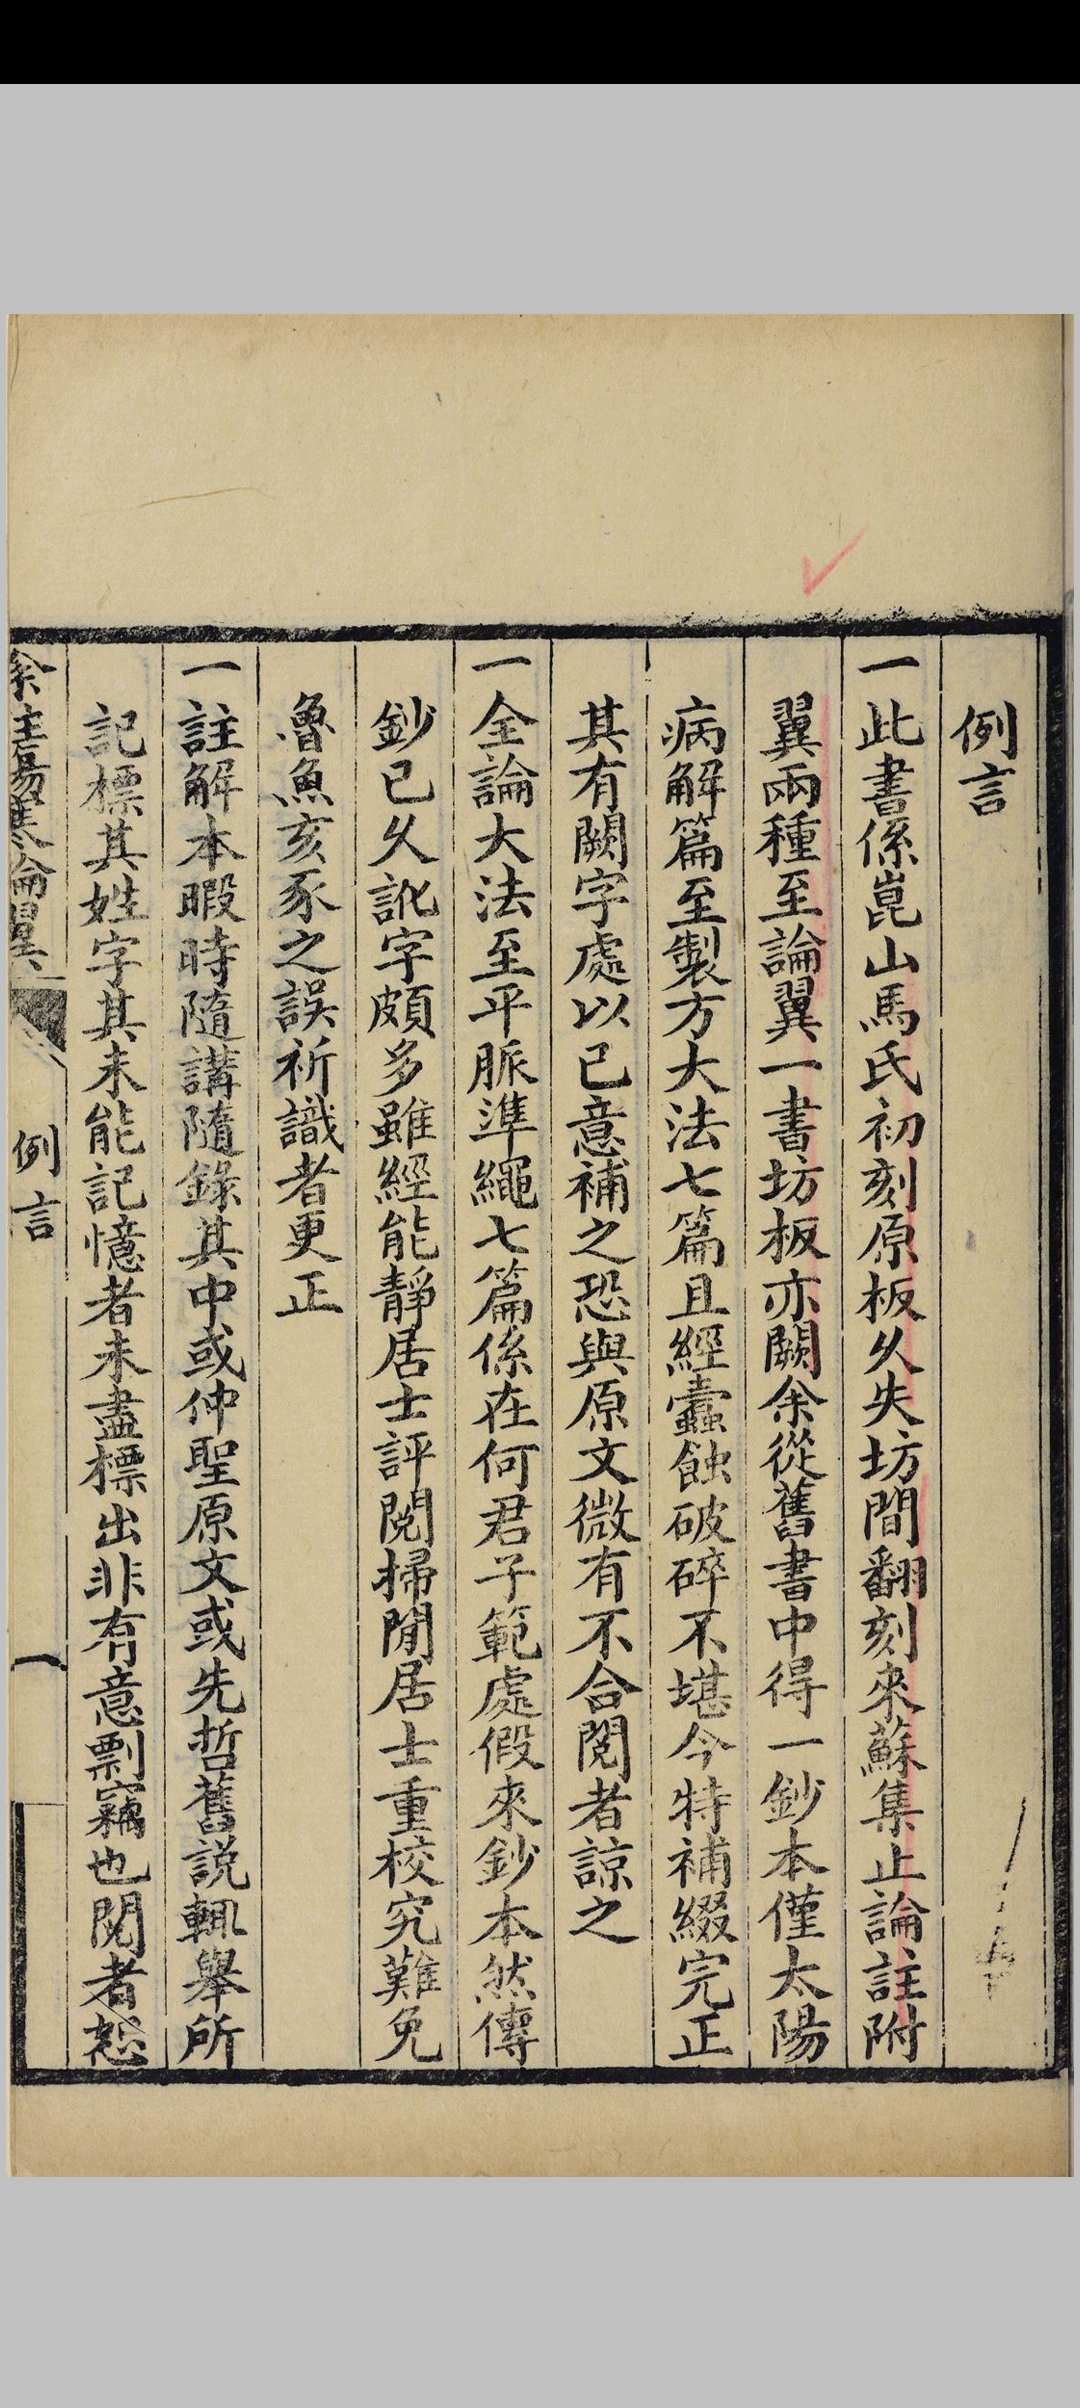 例言
一此書係崑山馬氏初刻原板久失坊間翻刻來蘇集止論註附
翼兩種至論翼一書坊板亦闕余從舊書中得一鈔本僅太陽
病解篇至製方大法七篇且經蠹蝕破碎不堪今特補綴完正
其有闕字處以已意補之恐與原文微有不合閱者諒之
一全論大法至平脈準繩七篇係在何君子範處假來鈔本然傳
鈔已久訛字頗多雖經能靜居士評閱掃閒居士重校究難免
魯魚亥豕之誤祈識者更正
一註解本暇時隨講隨錄其中或仲聖原文或先哲舊説輒舉所
記標其姓字其未能記憶者未盡標出非有意剽竊也閱者恕
余註傷寒論翼
例言
一